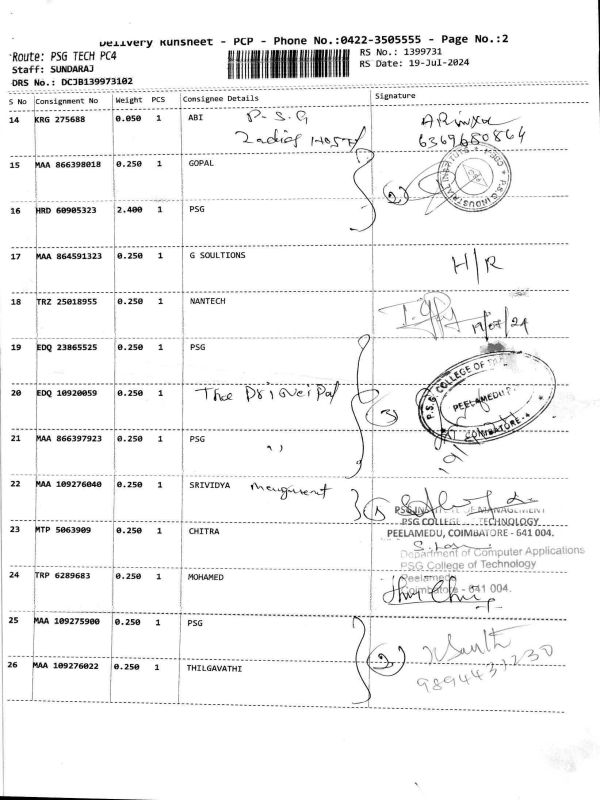 Delivery Runsheet - PCP - Phone No.:0422-3505555 - Page No.:2
Route: PSG TECH PC4
RS No.: 1399731
Staff: SUNDARAJ
RS Date: 19-Jul-2024
DRS No.: DCJB139973102
S No Consignment No Weight PCS Consignee Details Signature
14 KRG 275688 0.050 1 ABI P-S.G
6369680864
15 MAA 866398018 0.250 1 GOPAL
2
P.S.G INDUSTRIAL INSTITUTE
16 HRD 60905323 2.400 1 PSG
17 MAA 864591323 0.250 1 G SOULTIONS H/R
18 TRZ 25018955 0.250 1 NANTECH
19/07/24
19 EDQ 23865525 0.250 1 PSG
P.S.G COLLEGE OF
PEELAMEDU
COIMBATORE-4
20 EDQ 10920059 0.250 1 3
21 MAA 866397923 0.250 1 PSG ,,
22 MAA 109276040 0.250 1 SRIVIDYA
PSG INSTITUTE OF MANAGEMENT
PSG COLLEGE TECHNOLOGY
23 MTP 5063909 0.250 1 CHITRA PEELAMEDU, COIMBATORE - 641 004.
Department of Computer Applications
PSG College of Technology
24 TRP 6289683 0.250 1 MOHAMED Peelamedu
Coimbatore - 641 004.
25 MAA 109275900 0.250 1 PSG
2
26 MAA 109276022 0.250 1 THILGAVATHI
9894431230